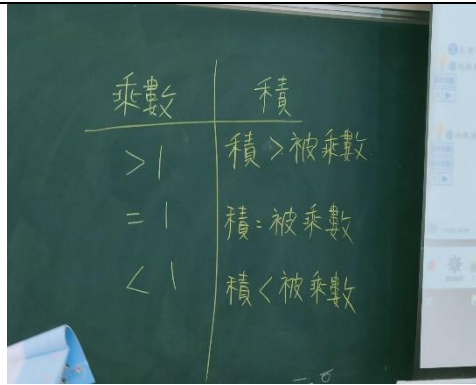 乘數 積
>1 積>被乘數
=1 積=被乘數
<1 積<被乘數